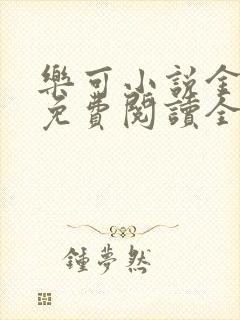 樂可小說全
免費閱讀全
鍾夢然